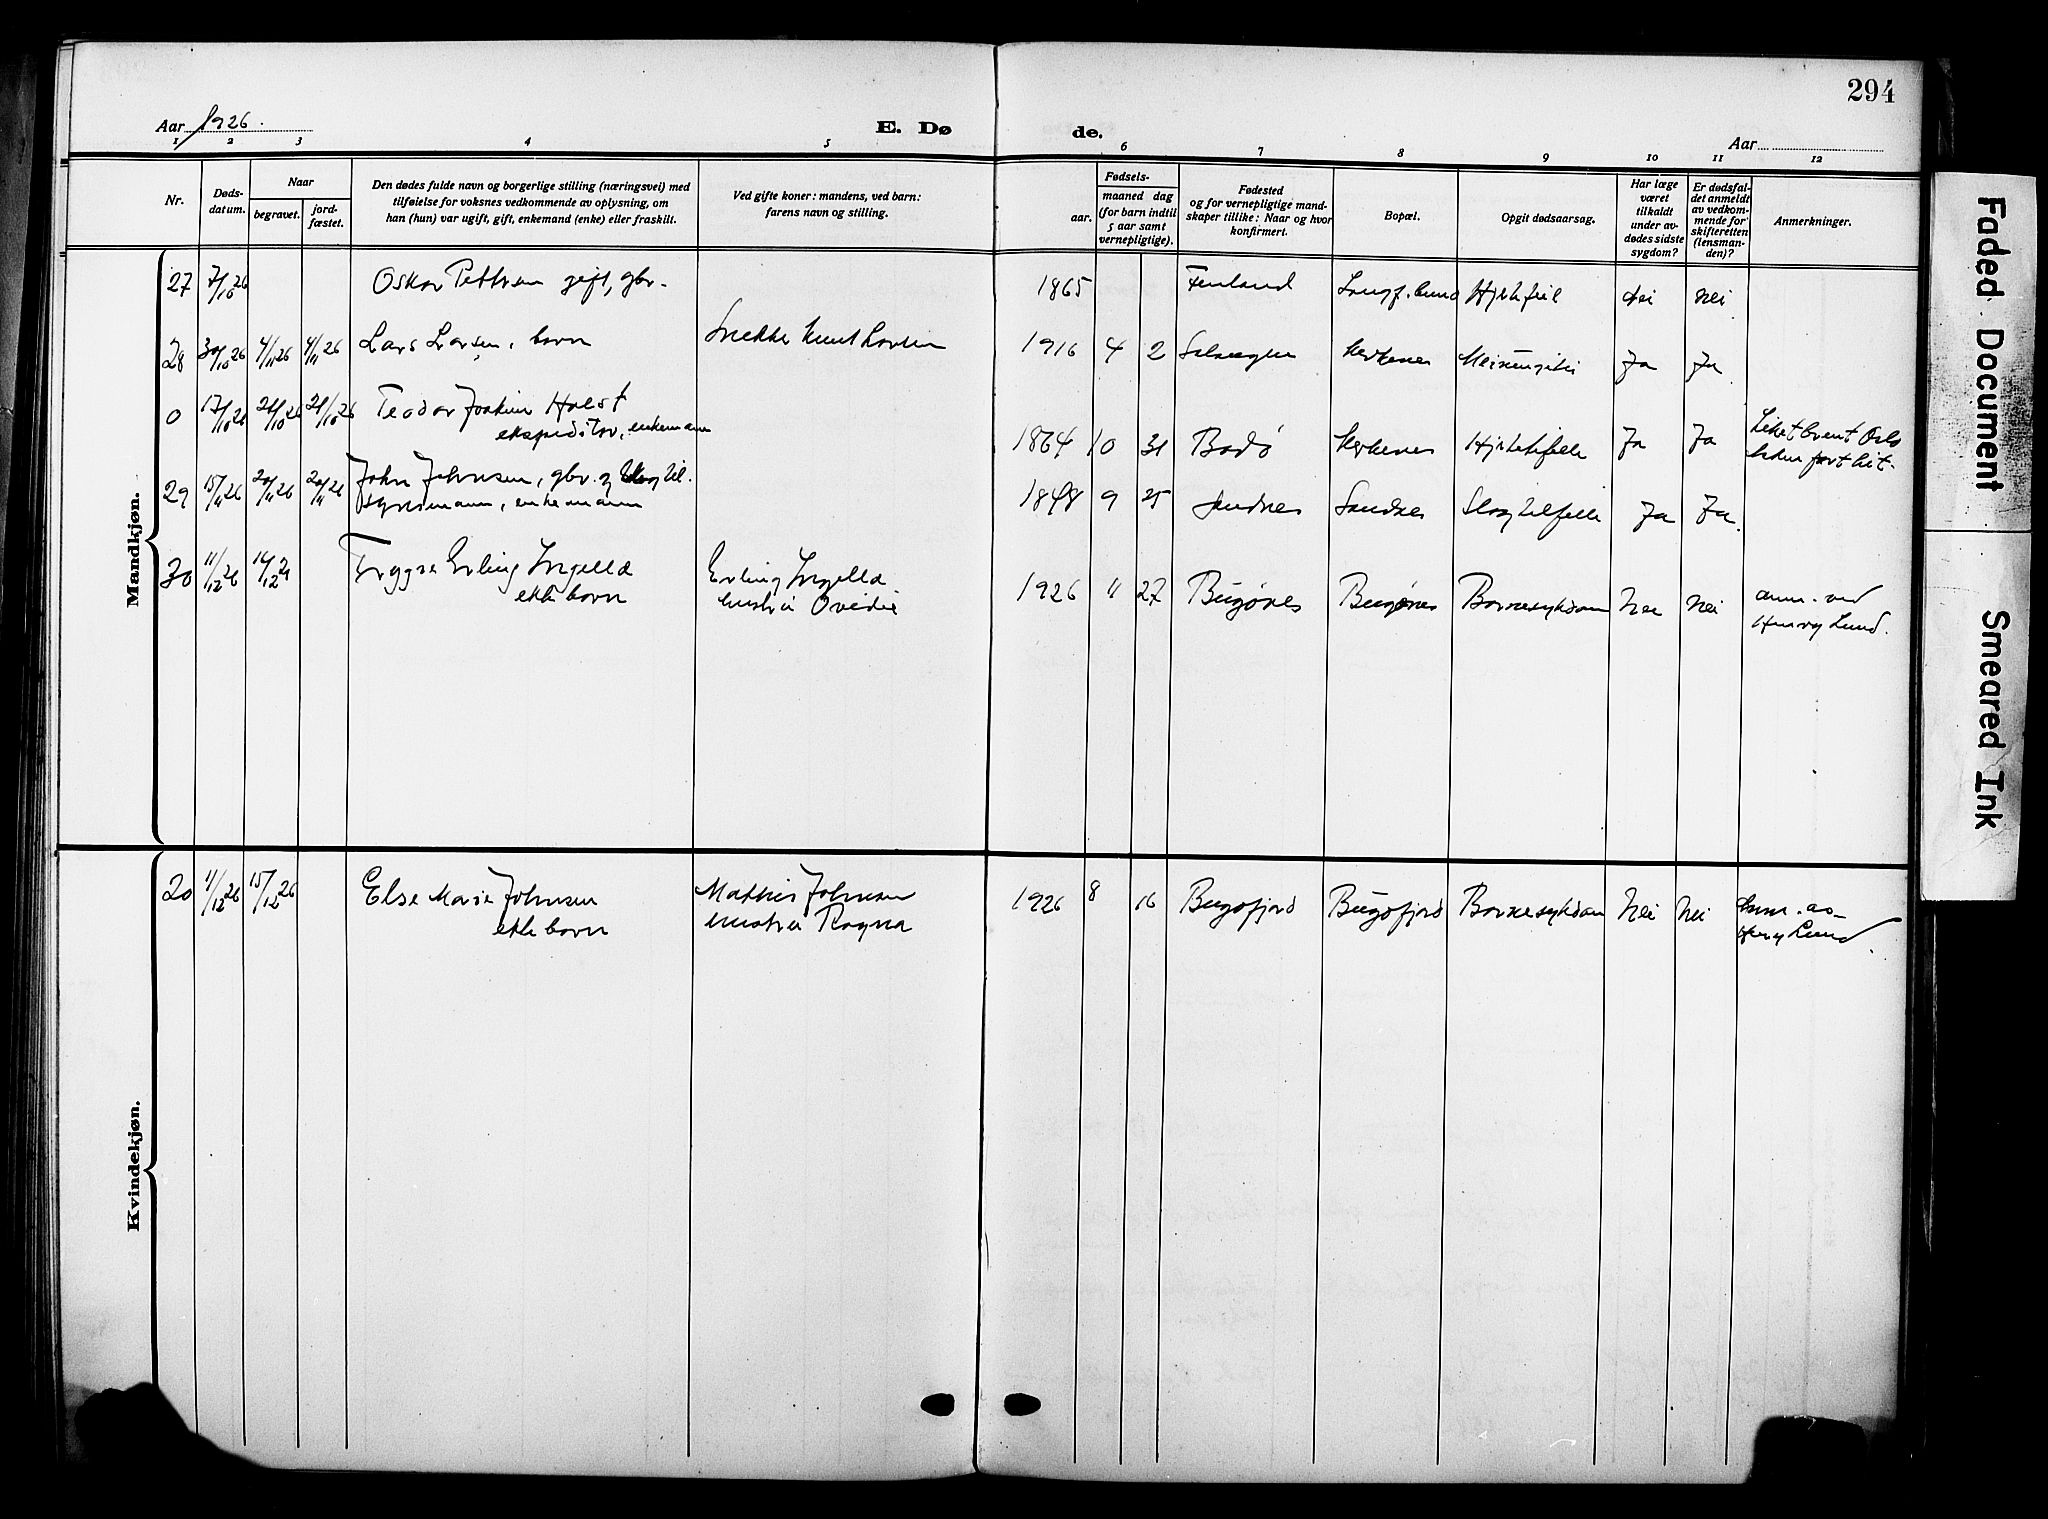 294
Aar 1926.
E. Døde.
Aar
1 2 3 4 5 6 7 8 9 10 11 12
Nr.
Døds-
datum.
Naar
begravet.
jord-
fæstet.
Den dødes fulde navn og borgerlige stilling (næringsvei) med
tilføielse for voksnes vedkommende av oplysning, om
han (hun) var ugift, gift, enkemand (enke) eller fraskilt.
Ved gifte koner: mandens, ved barn:
farens navn og stilling.
Fødsels-
aar.
maaned dag
(for barn indtil
5 aar samt
vernepligtige).
Fødested
og for vernepligtige mand-
skaper tillike: Naar og hvor
konfirmert.
Bopæl.
Opgit dødsaarsag.
Har læge
været
tilkaldt
under av-
dødes sidste
sygdom?
Er dødsfal-
det anmeldt
av vedkom-
mende for
skifteretten
(lensman-
den)?
Anmerkninger.
Mandkjøn.
27 7/10 26 Oskar Pettersen gift, gbr. 1865 Finland Langf.bund Hjertefeil Nei Nei
28 30/10 26 4/11 26 4/11 26 Lars Larsen, barn Snekker Knut Larsen 1916 4 2 Kirkenes Ja Ja
0 17/10 26 21/10 26 21/10 26 Teodor Joakim Holst
ekspeditør, enkemann 1864 10 31 Bodø Kirkenes Ja Ja Liket brent Oslo
29 15/11 26 20/11 26 20/11 26 John Johnsen, gbr. og
enkemann 1848 9 25 Sandnes Sandnes Slagtilfelle Ja Ja.
30 11/12 26 Trygve Erling Ingella
ekte barn Erling Ingella
hustru Ovidie 1926 11 27 Bugønes Bugønes Barnesykdom Nei Nei anm. ved
Henry Lund.
Kvindekjøn.
20 11/12 26 15/12 26 Else Marie Johnsen
ekte barn Mathis Johnsen
hustru Ragna 1926 8 16 Bugøfjord Bugøfjord Barnesykdom Nei Nei anm. av
Henry Lund.
Faded Document
Smeared Ink